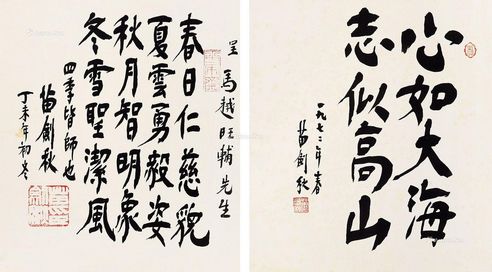 呈馬越旺輔先生
春日仁慈貌
夏雲勇毅姿
秋月智明象
冬雪聖潔風
四季皆師也
苗劍秋
丁未年初冬
心如大海
志似高山
一九七二年春
苗劍秋